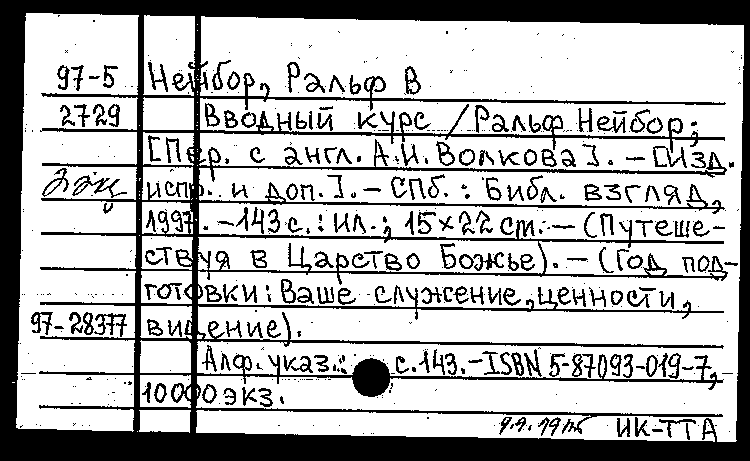 97-5 Нейбор, Ральф В
2729 Вводный курс / Ральф Нейбор;
[Пер. с англ. А.И. Волкова]. – [Изд.
испр. и доп.]. – СПб. : Библ. взгляд,
1997. – 143 с. : ил.; 15×22 cm. – (Путеше-
ствуя в Царство Божье). – (Год под-
готовки: Ваше служение, ценности,
97-28377 видение).
Алф. указ.: с. 143. – ISBN 5-87093-019-7,
10000 экз.
ИК-ТТА